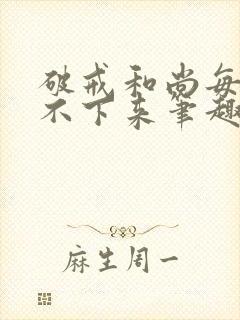 破戒和尚每
不下来笔趣
麻生周一